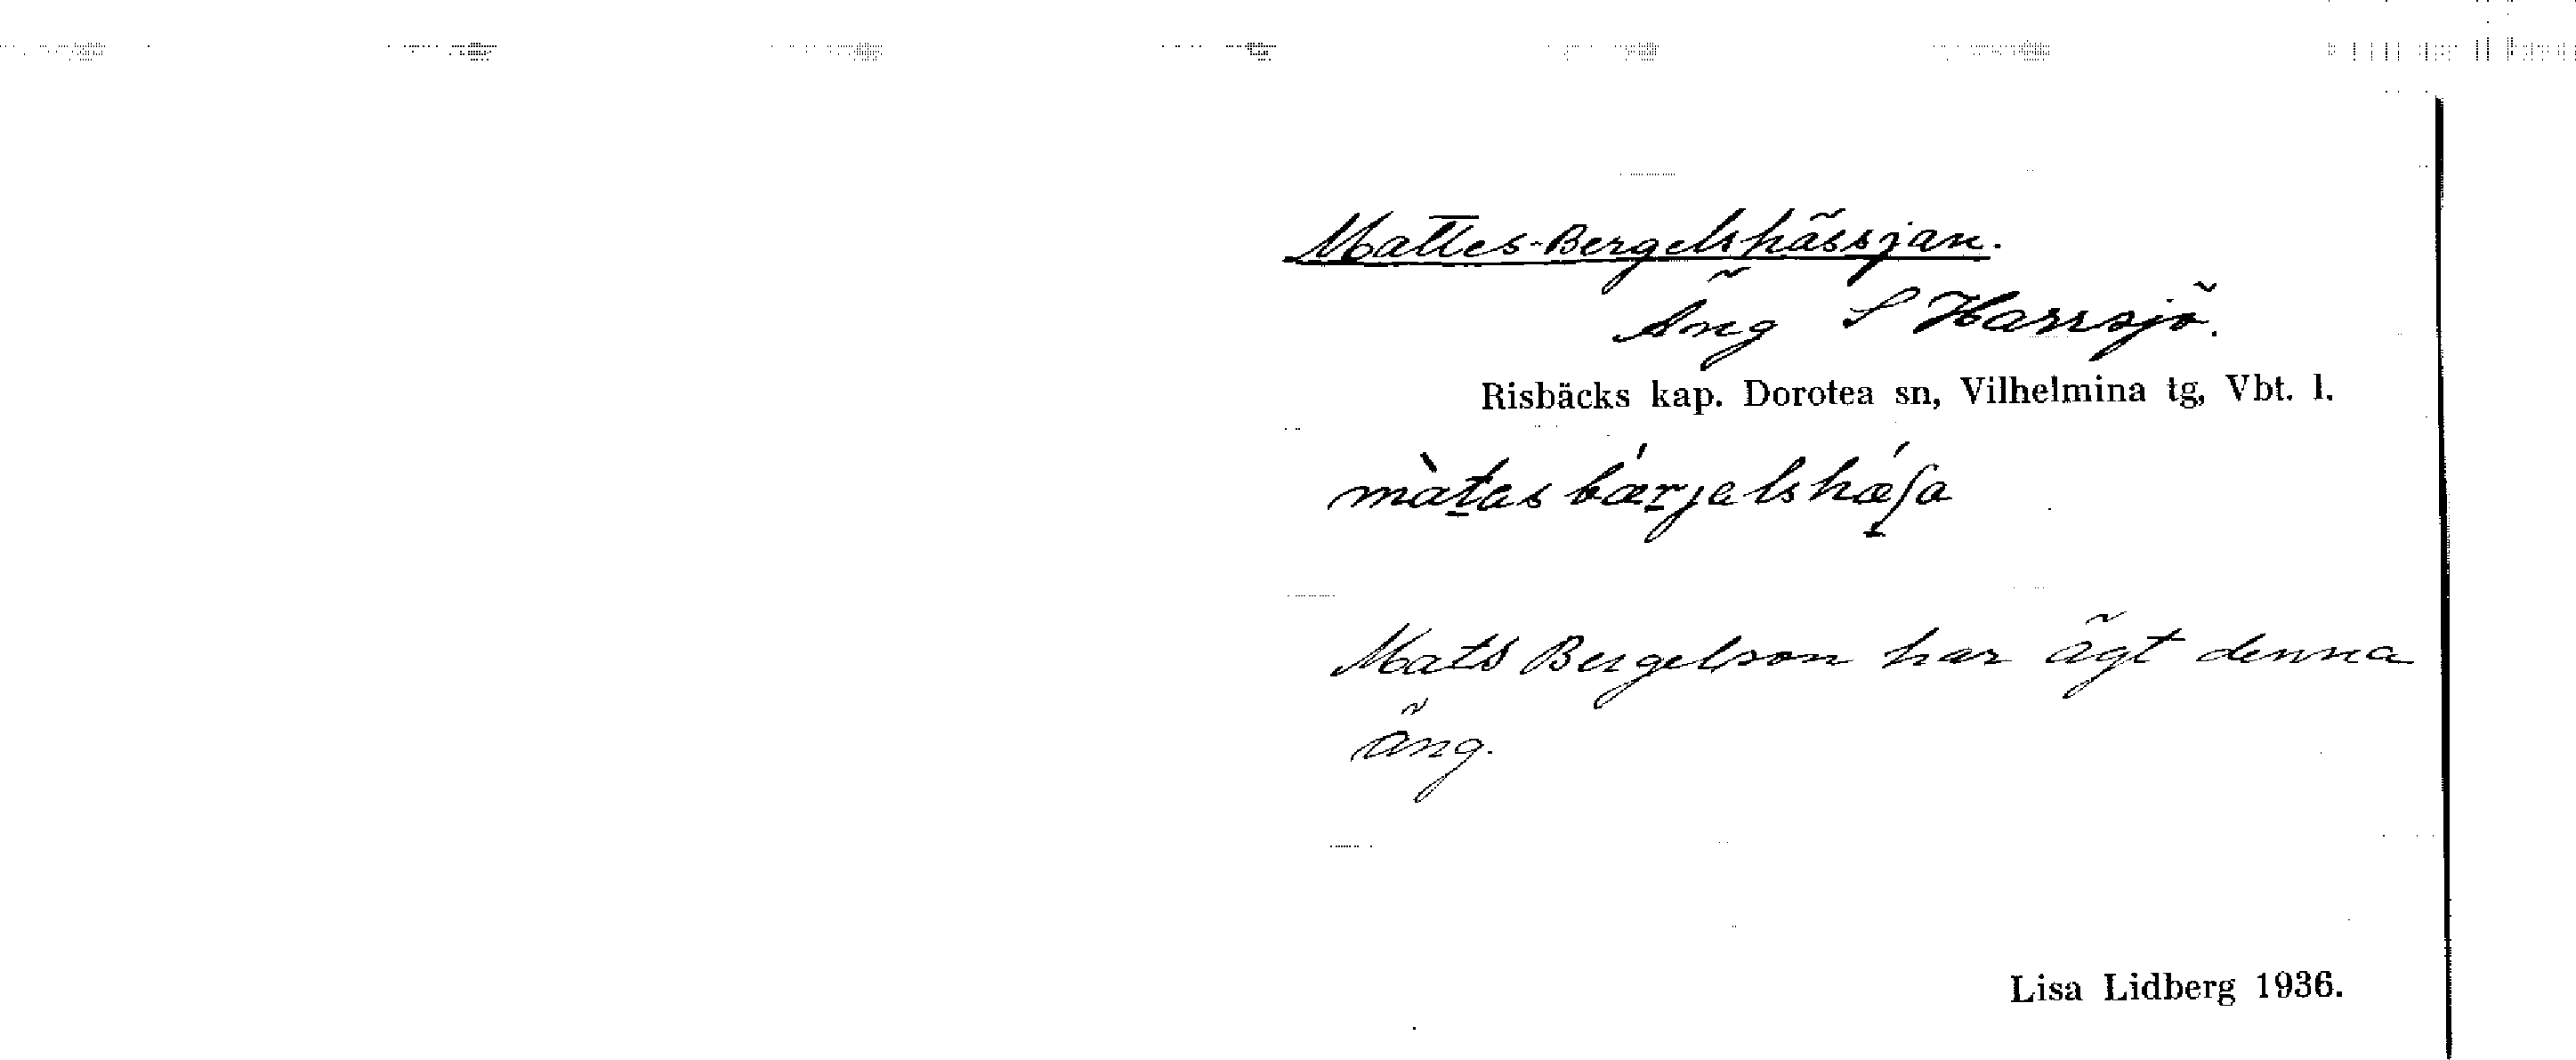 Mattes-Bergelshässjan.
Äng S Harrsjö.
Risbäcks kap. Dorotea sn, Vilhelmina tg, Vbt. l.
màtas bærjalshæʃa
Mats Bergelson har ägt denna
äng.
Lisa Lidberg 1936.